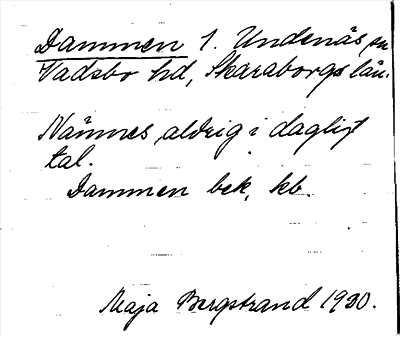 Dammen 1. Undenäs sn
Vadsbo hd, Skaraborgs län.
Nämnes aldrig i dagligt
tal.
Dammen bek, kb.
Maja Bergstrand 1930.